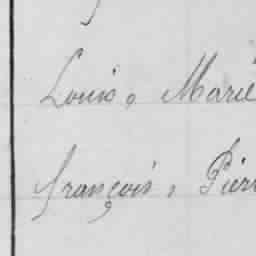 Louis, Marie
françois, Pier